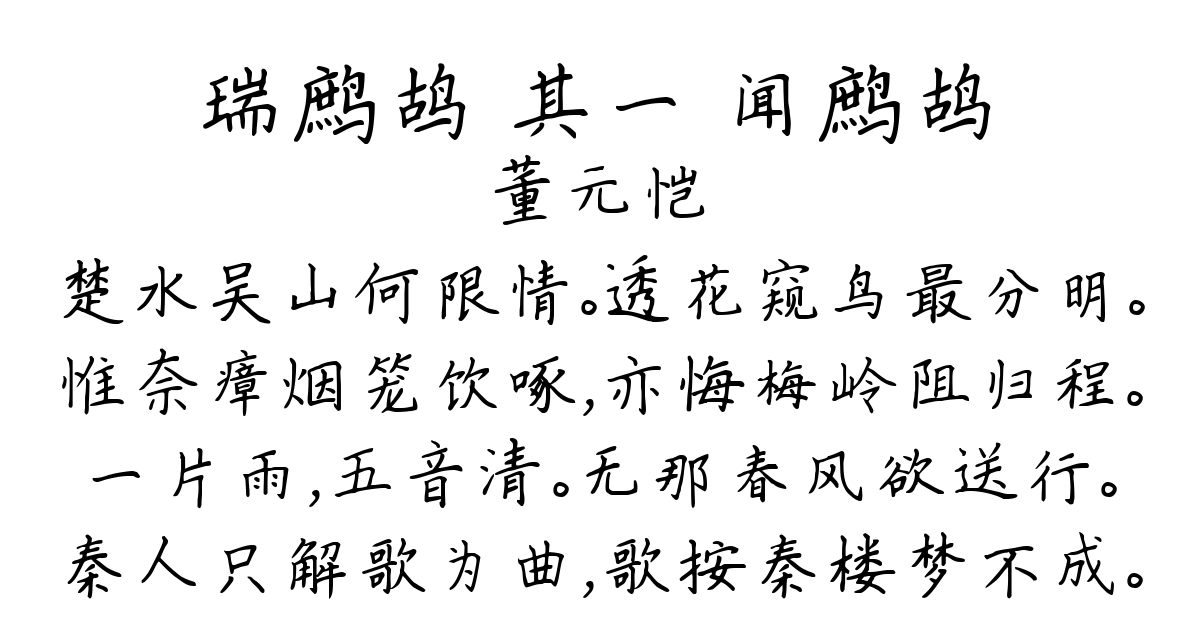 瑞鹧鸪 其一 闻鹧鸪
董元恺
楚水吴山何限情。透花窥鸟最分明。
惟奈瘴烟笼饮啄,亦悔梅岭阻归程。
一片雨,五音清。无那春风欲送行。
秦人只解歌为曲,歌按秦楼梦不成。